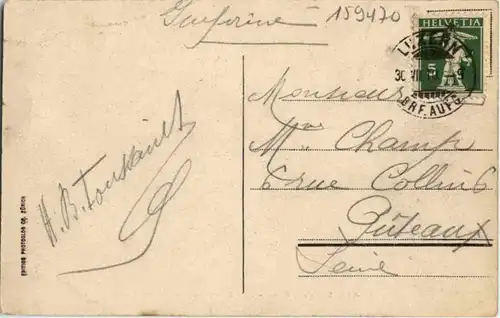 159470
HELVETIA
5
LUZERN
30 VII
BRF. AUFG.
Monsieur
Champ
6 rue Collins
Puteaux
Seine
H. B. Toussaint
EDITION PHOTOGLOB Co. ZÜRICH